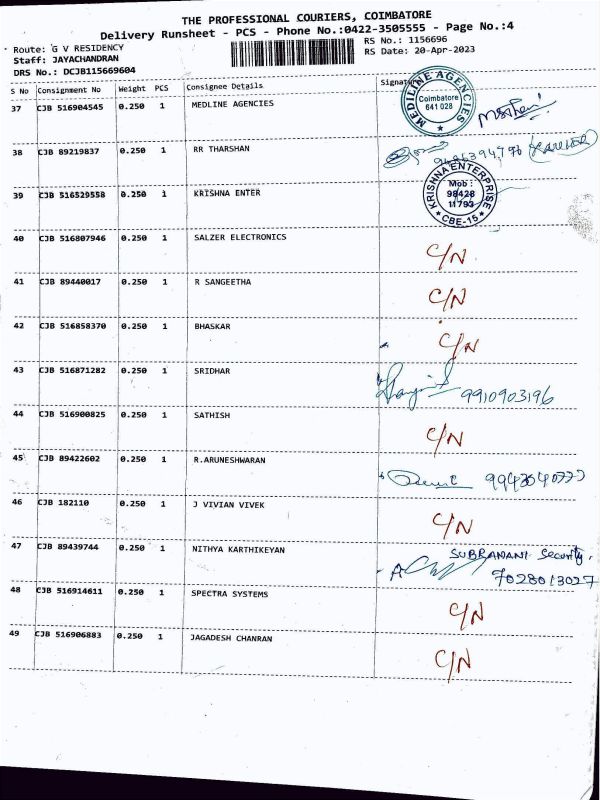 THE PROFESSIONAL COURIERS, COIMBATORE
Delivery Runsheet - PCS - Phone No.:0422-3505555 - Page No.:4
Route: G V RESIDENCY
RS No.: 1156696
Staff: JAYACHANDRAN
RS Date: 20-Apr-2023
DRS No.: DCJB115669604
S No Consignment No Weight PCS Consignee Details Signature
37 CJB 516904545 0.250 1 MEDLINE AGENCIES
MEDILINE AGENCIES
Coimbatore
641 028
38 CJB 89219837 0.250 1 RR THARSHAN
39 CJB 516529558 0.250 1 KRISHNA ENTER
KRISHNA ENTERPRISE
Mob :
98428
11793
CBE-15
40 CJB 516807946 0.250 1 SALZER ELECTRONICS C/N
41 CJB 89440017 0.250 1 R SANGEETHA C/N
42 CJB 516858370 0.250 1 BHASKAR C/N
43 CJB 516871282 0.250 1 SRIDHAR 9910903196
44 CJB 516900825 0.250 1 SATHISH C/N
45 CJB 89422602 0.250 1 R.ARUNESHWARAN
46 CJB 182110 0.250 1 J VIVIAN VIVEK C/N
47 CJB 89439744 0.250 1 NITHYA KARTHIKEYAN SUBRAMANI Security.
7028013027
48 CJB 516914611 0.250 1 SPECTRA SYSTEMS C/N
49 CJB 516906883 0.250 1 JAGADESH CHANRAN C/N